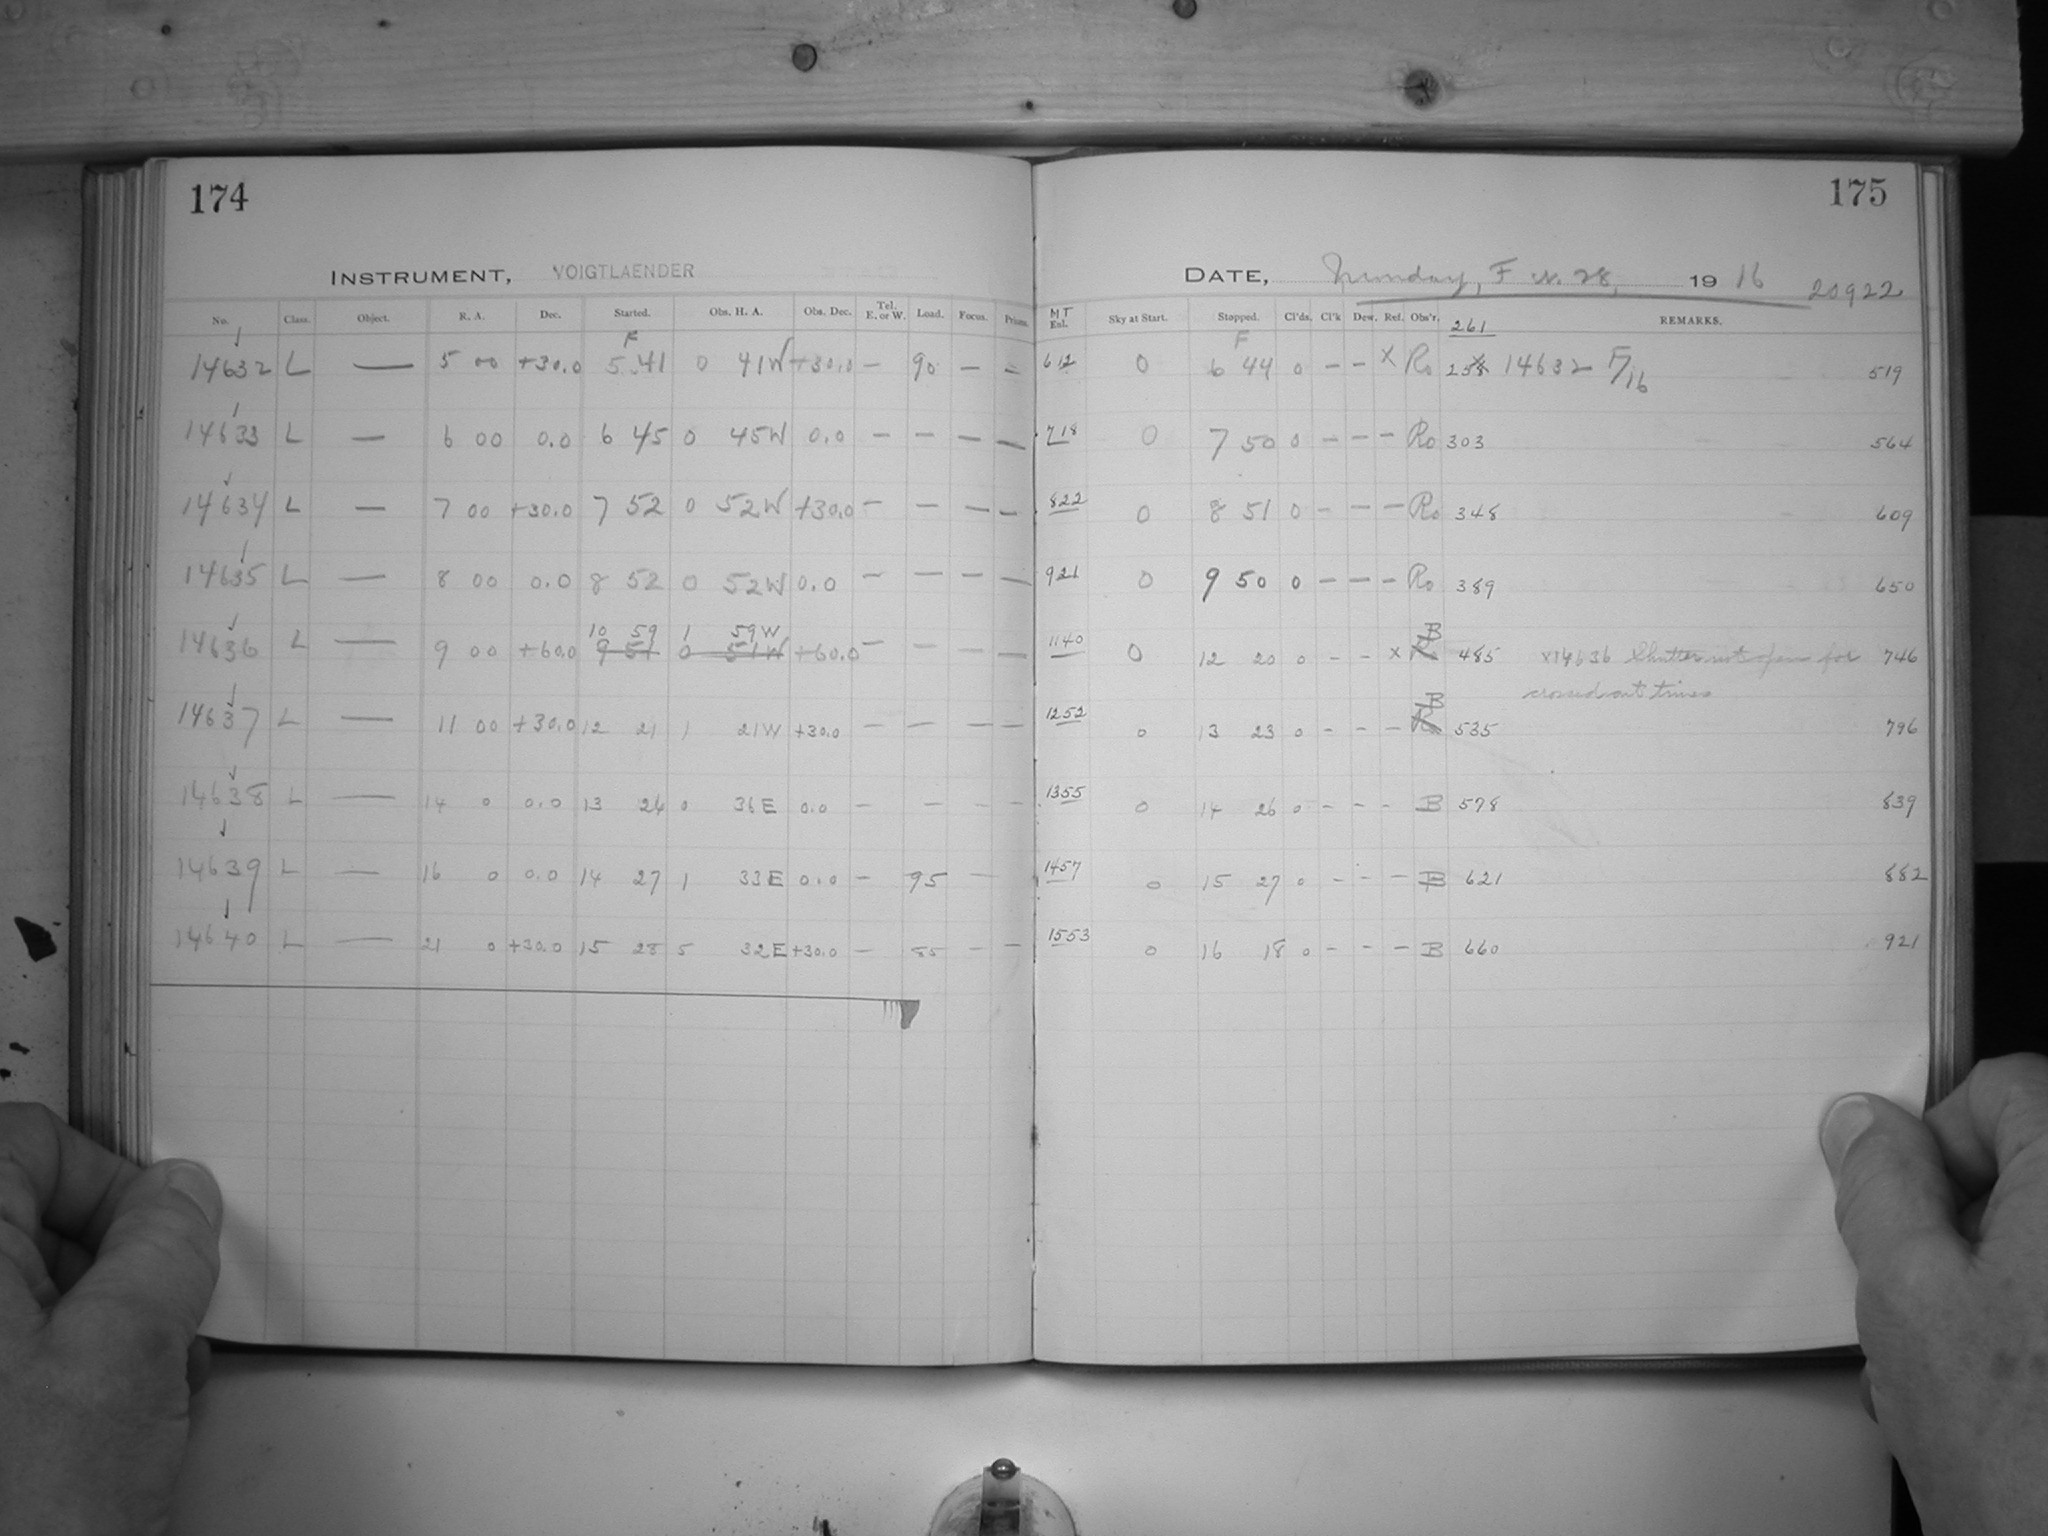 174
175
INSTRUMENT, VOIGTLAENDER
DATE, Monday, Feb. 28, 1916 20922
No. Class. Object. R. A. Dec. Started. Obs. H. A. Obs. Dec. Tel. E. or W. Load. Focus. Prism. MT Enl. Sky at Start. Stopped. Cl'ds. Cl'k Dew. Ref. Obs'r. 261 REMARKS.
F F
14632 L — 5 00 +30.0 5 41 0 41W +30.0 — 90 — — 612 0 6 44 0 — — X Ro 258 14632 F/16 519
14633 L — 6 00 0.0 6 45 0 45W 0.0 — — — — 718 0 7 50 0 — — — Ro 303 564
14634 L — 7 00 +30.0 7 52 0 52W +30.0 — — — — 822 0 8 51 0 — — — Ro 348 609
14635 L — 8 00 0.0 8 52 0 52W 0.0 — — — — 921 0 9 50 0 — — — Ro 389 650
10 59 1 59W B
14636 L — 9 00 +60.0 9 51 0 51W +60.0 — — — — 1140 0 12 20 0 — — X Ro 485 X14636 Shutter not open for 746
crossed out times
B
14637 L — 11 00 +30.0 12 21 1 21W +30.0 — — — — 1252 0 13 23 0 — — — Ro 535 796
14638 L — 14 0 0.0 13 24 0 36E 0.0 — — — — 1355 0 14 26 0 — — — B 578 839
14639 L — 16 0 0.0 14 27 1 33E 0.0 — 95 — 1457 0 15 27 0 — — — B 621 882
14640 L — 21 0 +30.0 15 28 5 32E +30.0 — 85 — — 1553 0 16 18 0 — — — B 660 921